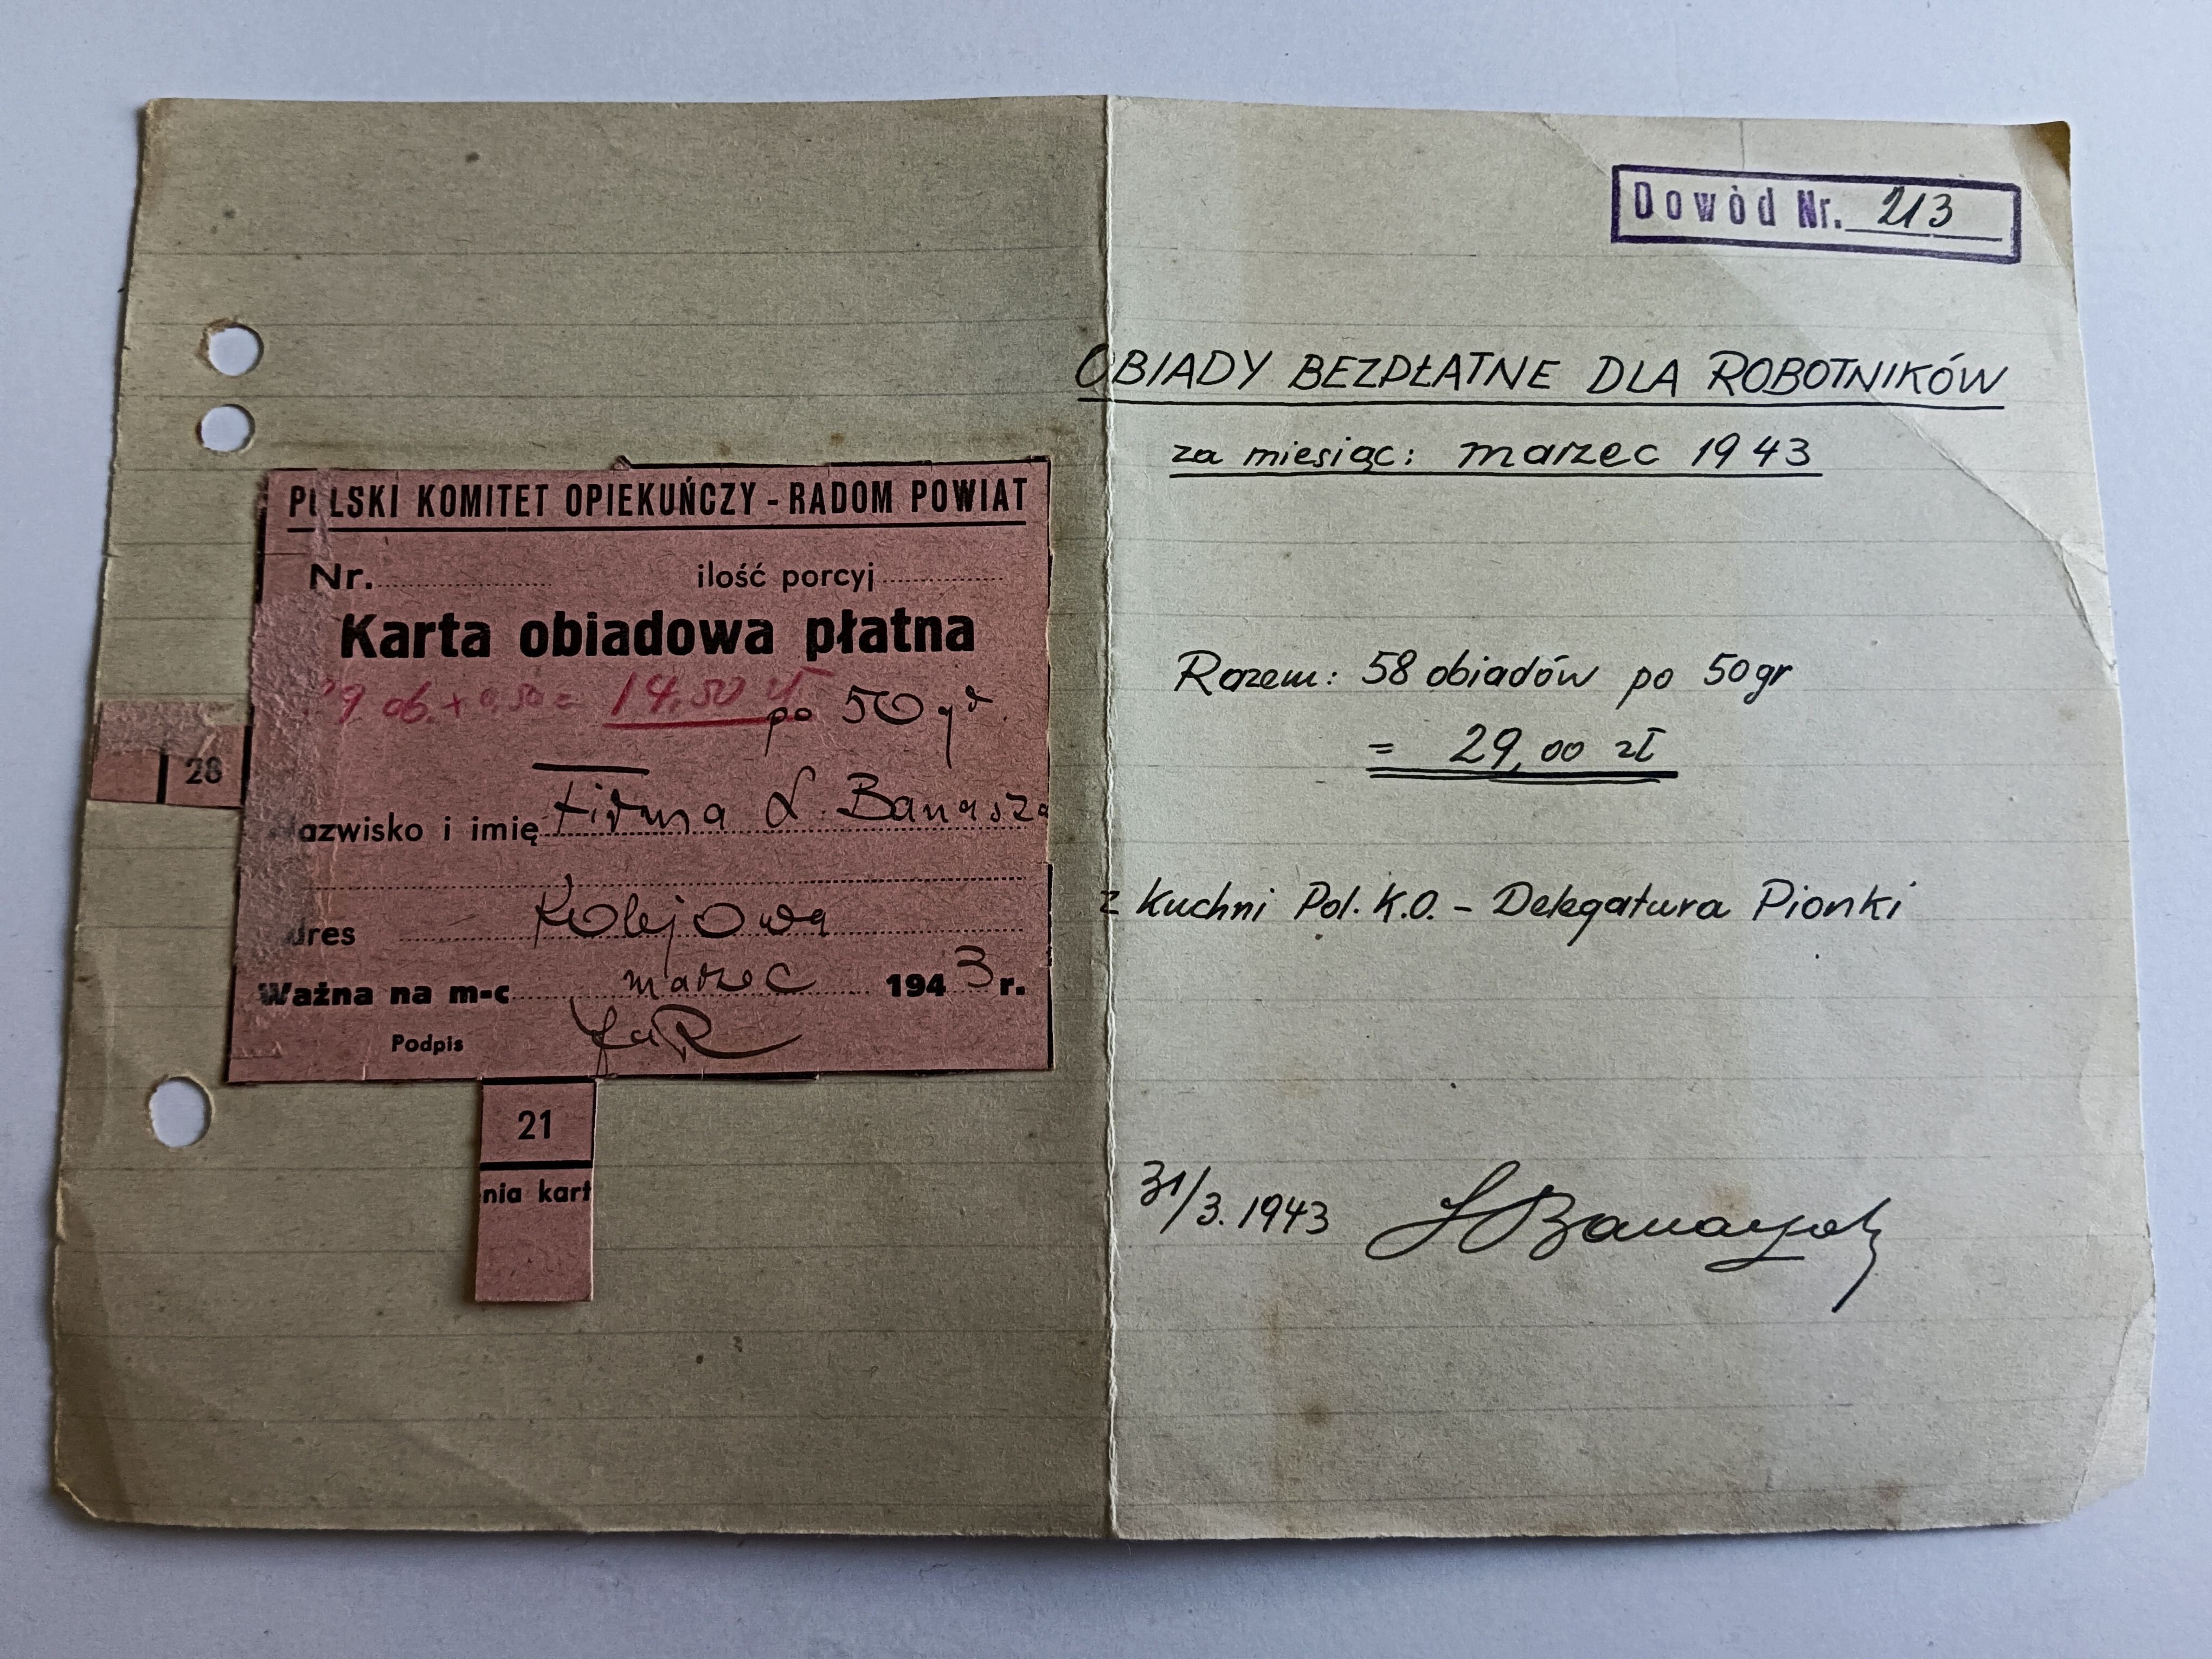 Dowód Nr. 213
OBIADY BEZPŁATNE DLA ROBOTNIKÓW
za miesiąc: marzec 1943
Razem: 58 obiadów po 50gr
= 29,00 zł
z Kuchni Pol. K.O. - Delegatura Pionki
31/3. 1943
POLSKI KOMITET OPIEKUŃCZY - RADOM POWIAT
Nr. ilość porcyj
Karta obiadowa płatna
9 ob. + 0,50 = 14,50 zł
po 50 gr.
azwisko i imię Firma L. Banasza
dres Kolejowa
Ważna na m-c marzec 1943 r.
Podpis
28
21
nia kart